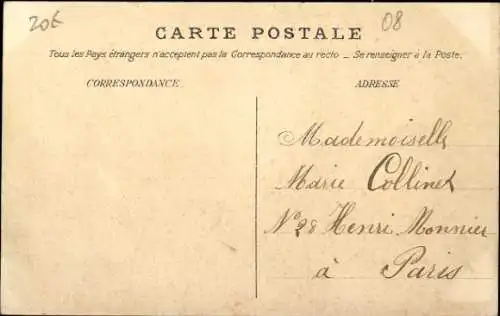 20€
08
CARTE POSTALE
Tous les Pays étrangers n'acceptent pas la Correspondance au recto _ Se renseigner à la Poste.
CORRESPONDANCE
ADRESSE
Mademoiselle
Marie Collinet
N° 28 Henri Monnier
à Paris